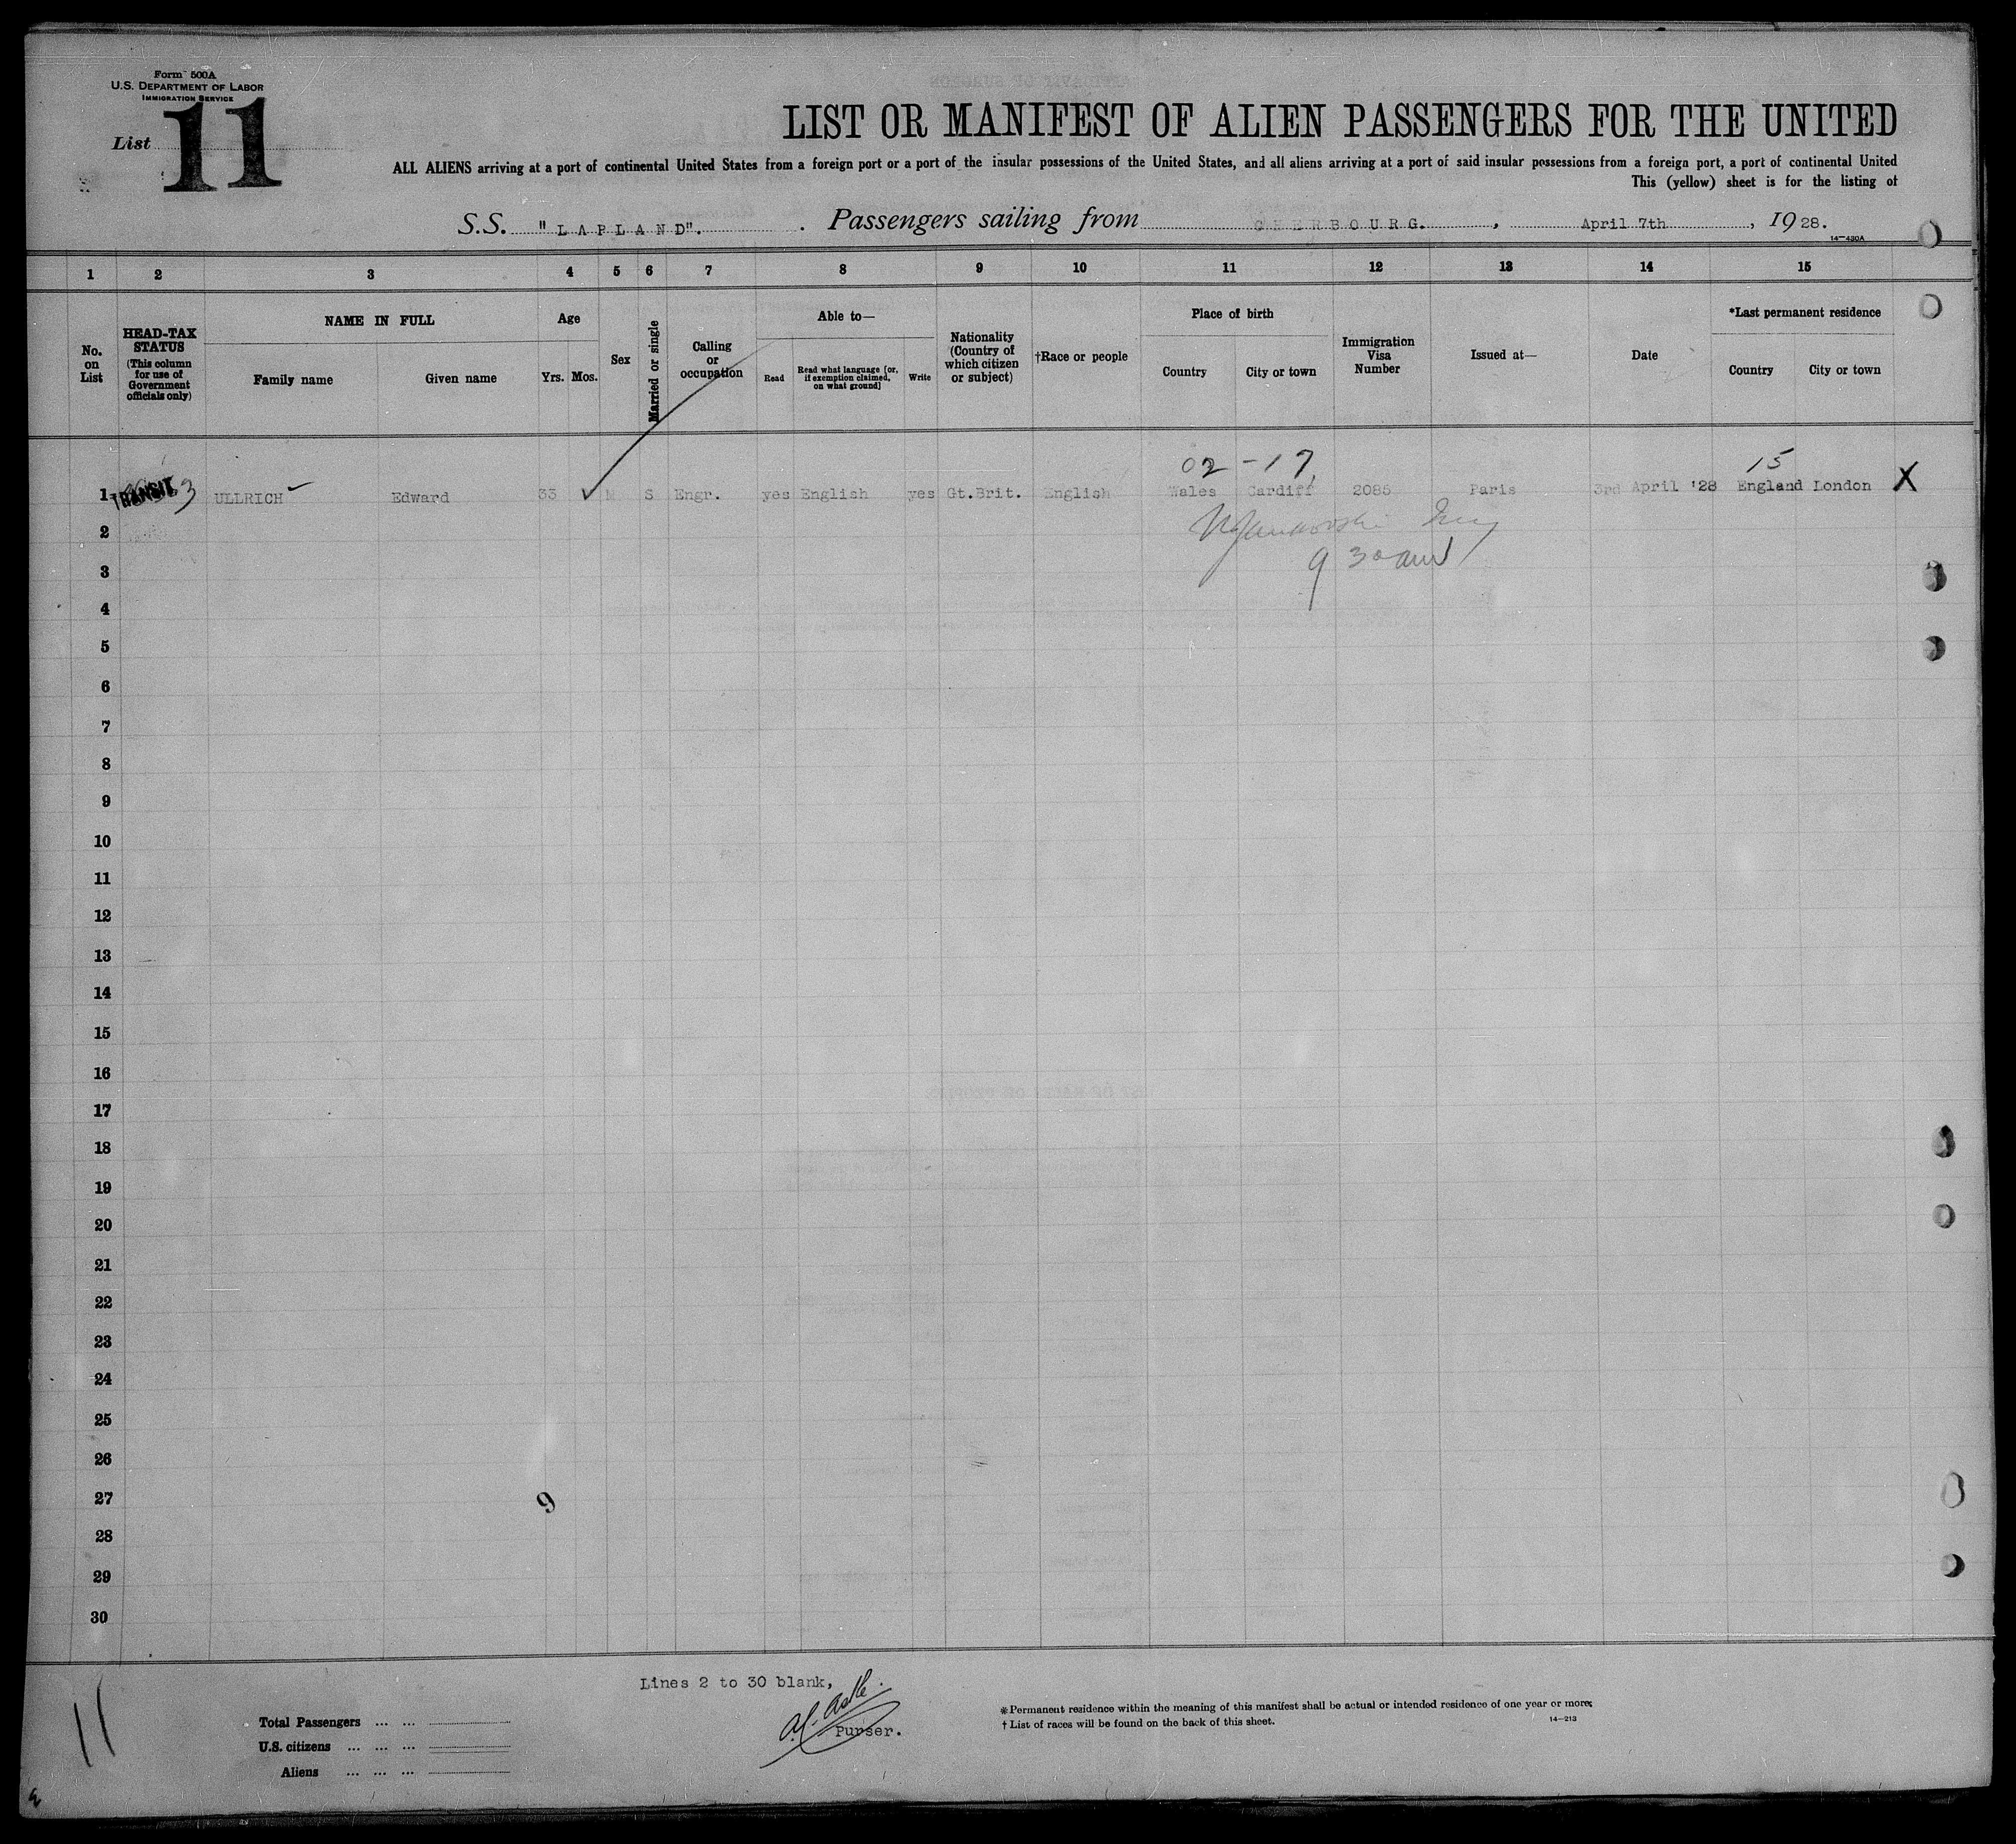 Form 500A
U.S. DEPARTMENT OF LABOR
IMMIGRATION SERVICE
List 11
LIST OR MANIFEST OF ALIEN PASSENGERS FOR THE UNITED
ALL ALIENS arriving at a port of continental United States from a foreign port or a port of the insular possessions of the United States, and all aliens arriving at a port of said insular possessions from a foreign port, a port of continental United
This (yellow) sheet is for the listing of
S.S. "LAPLAND". Passengers sailing from CHERBOURG. , April 7th , 1928.
14—430A
1 2 3 4 5 6 7 8 9 10 11 12 13 14 15
No. on List
HEAD-TAX STATUS (This column for use of Government officials only)
NAME IN FULL
Family name Given name
Age
Yrs. Mos.
Sex
Married or single
Calling or occupation
Able to—
Read Read what language [or, if exemption claimed, on what ground] Write
Nationality (Country of which citizen or subject)
†Race or people
Place of birth
Country City or town
Immigration Visa Number
Issued at—
Date
*Last permanent residence
Country City or town
02 - 17 15
1 TRANSIT ULLRICH Edward 33 M S Engr. yes English yes Gt.Brit. English Wales Cardiff 2085 Paris 3rd April '28 England London X
2
9 30 am
3
4
5
6
7
8
9
10
11
12
13
14
15
16
17
18
19
20
21
22
23
24
25
26
27 9
28
29
30
Lines 2 to 30 blank,
Purser.
11
Total Passengers ... ...
U.S. citizens ... ... ...
Aliens ... ... ...
*Permanent residence within the meaning of this manifest shall be actual or intended residence of one year or more.
†List of races will be found on the back of this sheet.
14—213